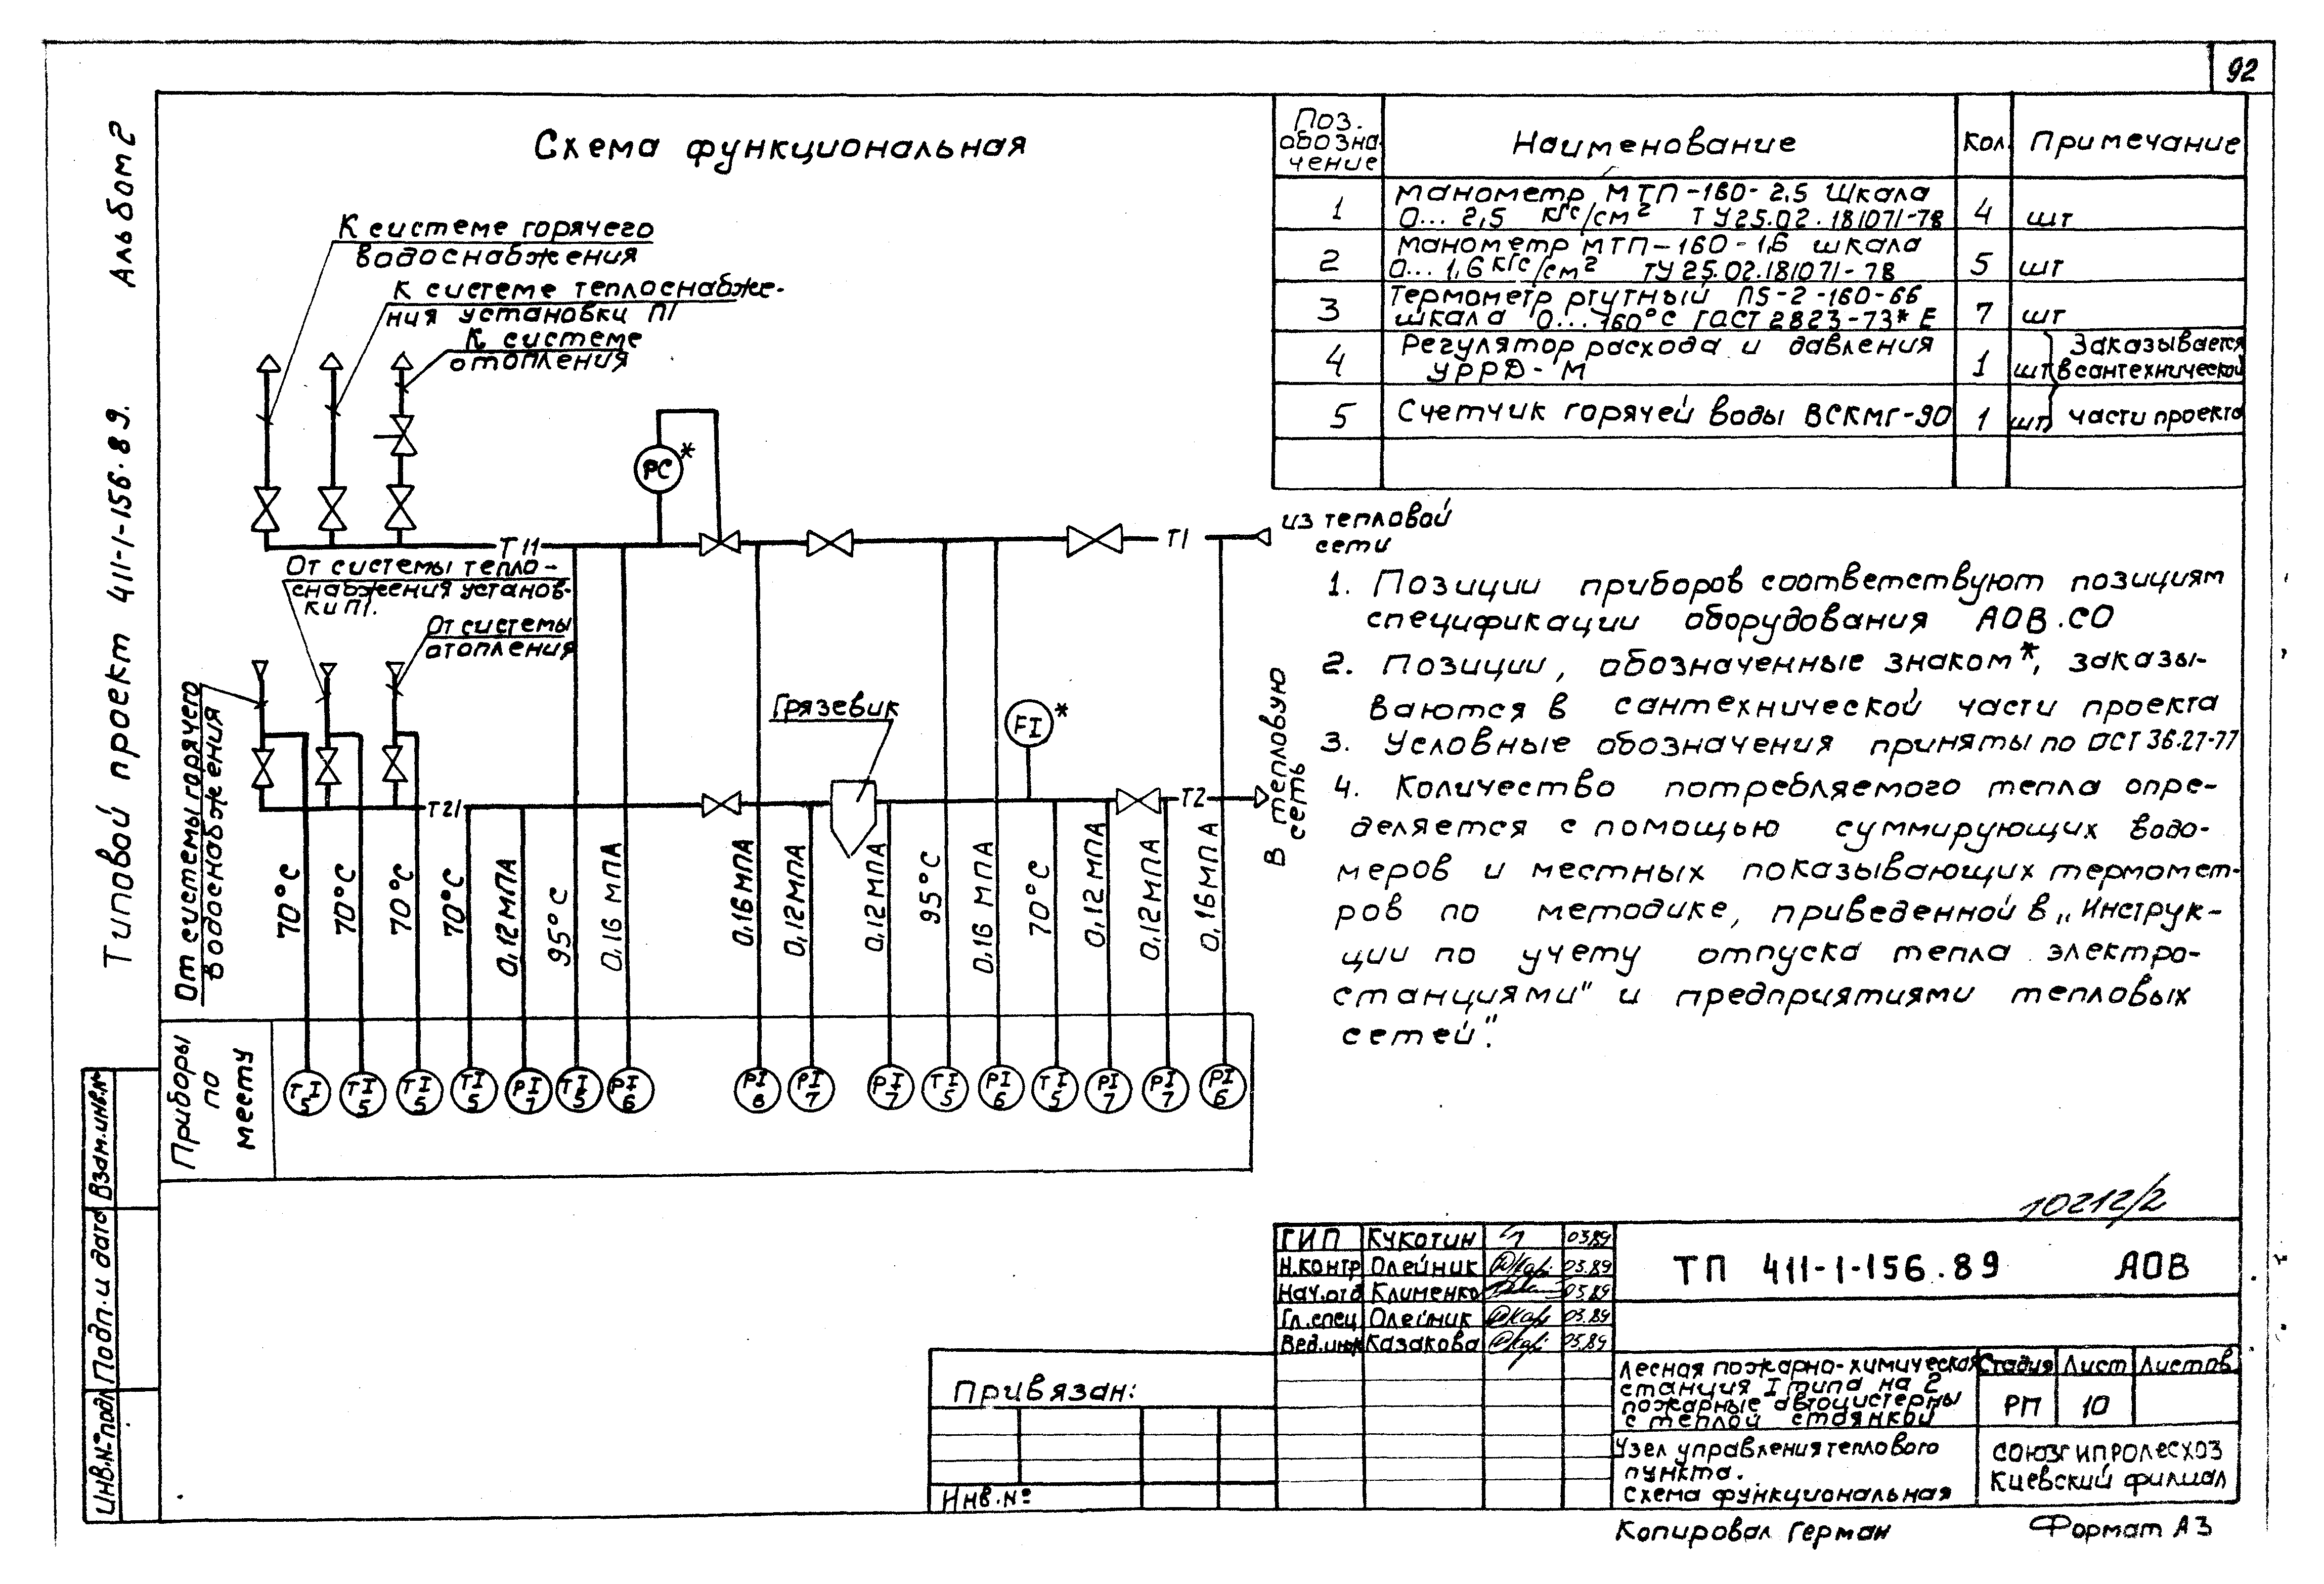 92
Альбом 2
Типовой проект 411-1-156.89.
Схема функциональная
К системе горячего
водоснабжения
К системе теплоснабже-
ния установки П1
К системе
отопления
PC *
Т11
Т1
из тепловой
сети
От системы тепло-
снабжения установ-
ки П1.
От системы
отопления
От системы горячего
водоснабжения
Грязевик
FI *
Т21
Т2
В тепловую
сеть
70°С
70°С
70°С
70°С
0,12МПА
95°С
0,16 МПА
0,16 МПА
0,12МПА
0,12 МПА
95°С
0,16 МПА
70°С
0,12 МПА
0,12МПА
0,16МПА
Приборы
по
месту
TI 5
TI 5
TI 5
TI 5
PI 7
TI 5
PI 6
PI 6
PI 7
PI 7
TI 5
PI 6
TI 5
PI 7
PI 7
PI 6
Поз. обозна чение Наименование Кол. Примечание
1 Манометр МТП-160-2,5 Шкала
0... 2,5 кгс/см² ТУ25.02.181071-78 4 шт
2 Манометр МТП-160-1,6 шкала
0... 1,6 кгс/см² ТУ25.02.181071-78 5 шт
3 Термометр ртутный П5-2-160-66
шкала 0...160°С ГОСТ 2823-73* Е 7 шт
4 Регулятор расхода и давления
УРРД-М 1 шт Заказывается
в сантехнической
5 Счетчик горячей воды ВСКМГ-90 1 шт части проекта
1. Позиции приборов соответствуют позициям
спецификации оборудования АОВ.СО
2. Позиции, обозначенные знаком*, заказы-
ваются в сантехнической части проекта
3. Условные обозначения приняты по ОСТ 36.27-77
4. Количество потребляемого тепла опре-
деляется с помощью суммирующих водо-
меров и местных показывающих термомет-
ров по методике, приведенной в „Инструк-
ции по учету отпуска тепла электро-
станциями" и предприятиями тепловых
сетей".
10212/2
ГИП Кукотин 03.89
Н.контр Олейник 03.89
Нач.отд Клименко 03.89
Гл.спец Олейник 03.89
Вед.инж Казакова 03.89
ТП 411-1-156.89 АОВ
Лесная пожарно-химическая
станция I типа на 2
пожарные автоцистерны
с теплой стоянкой
Стадия Лист Листов
РП 10
Узел управления теплового
пункта.
Схема функциональная
СОЮЗГИПРОЛЕСХОЗ
Киевский филиал
Привязан:
Инв.№
Инв.№подл
Подп.и дата
Взам.инв.№
Копировал Герман
Формат А3